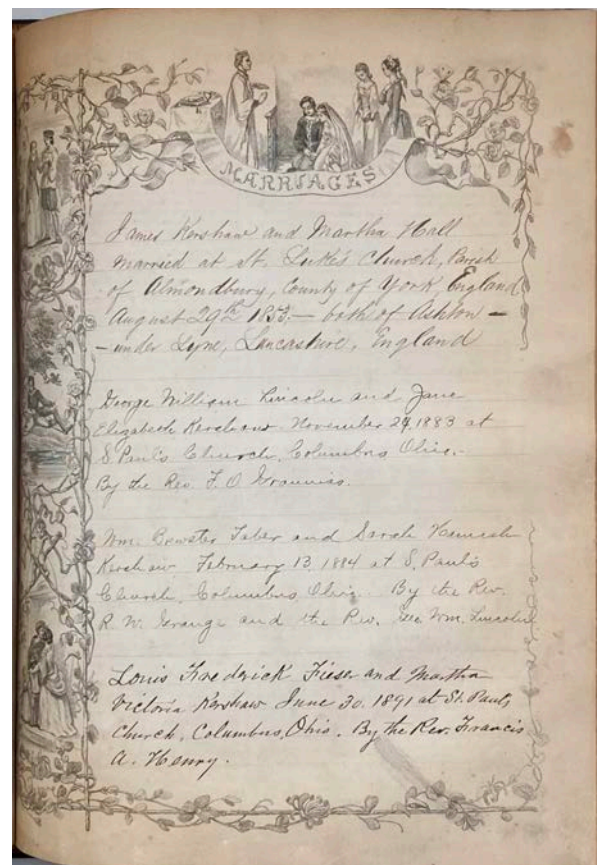 MARRIAGES
James Kershaw and Martha Hall
married at St. Luke's Church, Parish
of Almondbury, County of York, England
August 29th 1853,— both of Ashton —
— under Lyne, Lancashire, England
George William Lincoln and Jane
Elizabeth Kershaw November 29, 1883 at
S. Paul's Church, Columbus Ohio.
By the Rev. F. O.
Wm. Bewster Taber and Sarah
Kershaw February 13, 1884 at S. Paul's
Church, Columbus, Ohio. By the Rev.
R. W. Grange and the Rev. Geo Wm. Lincoln
Louis Frederick Fieser and Martha
Victoria Kershaw June 30, 1891 at St. Paul's
Church, Columbus, Ohio. By the Rev. Francis
A. Henry.